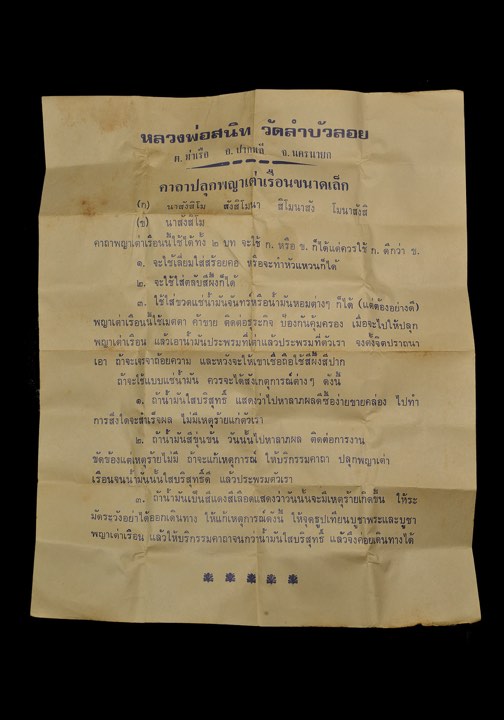 หลวงพ่อสนิท วัดลำบัวลอย
ต. ท่าเรือ อ. ปากพลี จ. นครนายก
คาถาปลุกพญาเต่าเรือนขนาดเล็ก
(ก) นาสังสิโม สังสิโมนา สิโมนาสัง โมนาสังสิ
(ข) นาสังสิโม
คาถาพญาเต่าเรือนนี้ใช้ได้ทั้ง ๒ บท จะใช้ ก. หรือ ข. ก็ได้แต่ควรใช้ ก. ดีกว่า ข.
๑. จะใช้เลี่ยมใส่สร้อยคอ หรือจะทำหัวแหวนก็ได้
๒. จะใช้ใส่ตลับสีผึ้งก็ได้
๓. ใช้ใส่ขวดแช่น้ำมันจันทร์หรือน้ำมันหอมต่างๆ ก็ได้ (แต่ต้องอย่างดี)
พญาเต่าเรือนนี้ใช้เมตตา ค้าขาย ติดต่อธุระกิจ ป้องกันคุ้มครอง เมื่อจะไปให้ปลุก
พญาเต่าเรือน แล้วเอาน้ำมันประพรมที่เต่าแล้วประพรมที่ตัวเรา จงตั้งจิตปรารถนา
เอา ถ้าจะเจรจาถ้อยความ และหวังจะให้เขาเชื่อถือใช้สีผึ้งสีปาก
ถ้าจะใช้แบบแช่น้ำมัน ควรจะได้สังเกตุการณ์ต่างๆ ดังนี้
๑. ถ้าน้ำมันใสบริสุทธิ์ แสดงว่าไปหาลาภผลดีซื้อง่ายขายคล่อง ไปทำ
การสิ่งใดจะสำเร็จผล ไม่มีเหตุร้ายแก่ตัวเรา
๒. ถ้าน้ำมันสีขุ่นข้น วันนั้นไปหาลาภผล ติดต่อการงาน
ขัดข้องแต่เหตุร้ายไม่มี ถ้าจะแก้เหตุการณ์ ให้บริกรรมคาถา ปลุกพญาเต่า
เรือนจนน้ำมันนั้นใสบริสุทธิ์ดี แล้วประพรมตัวเรา
๓. ถ้าน้ำมันเป็นสีแดงสีเลือดแสดงว่าวันนั้นจะมีเหตุร้ายเกิดขึ้น ให้ระ
มัดระวังอย่าได้ออกเดินทาง ให้แก้เหตุการณ์ดังนี้ ให้จุดธูปเทียนบูชาพระและบูชา
พญาเต่าเรือน แล้วให้บริกรรมคาถาจนกว่าน้ำมันใสบริสุทธิ์ แล้วจึงค่อยเดินทางได้